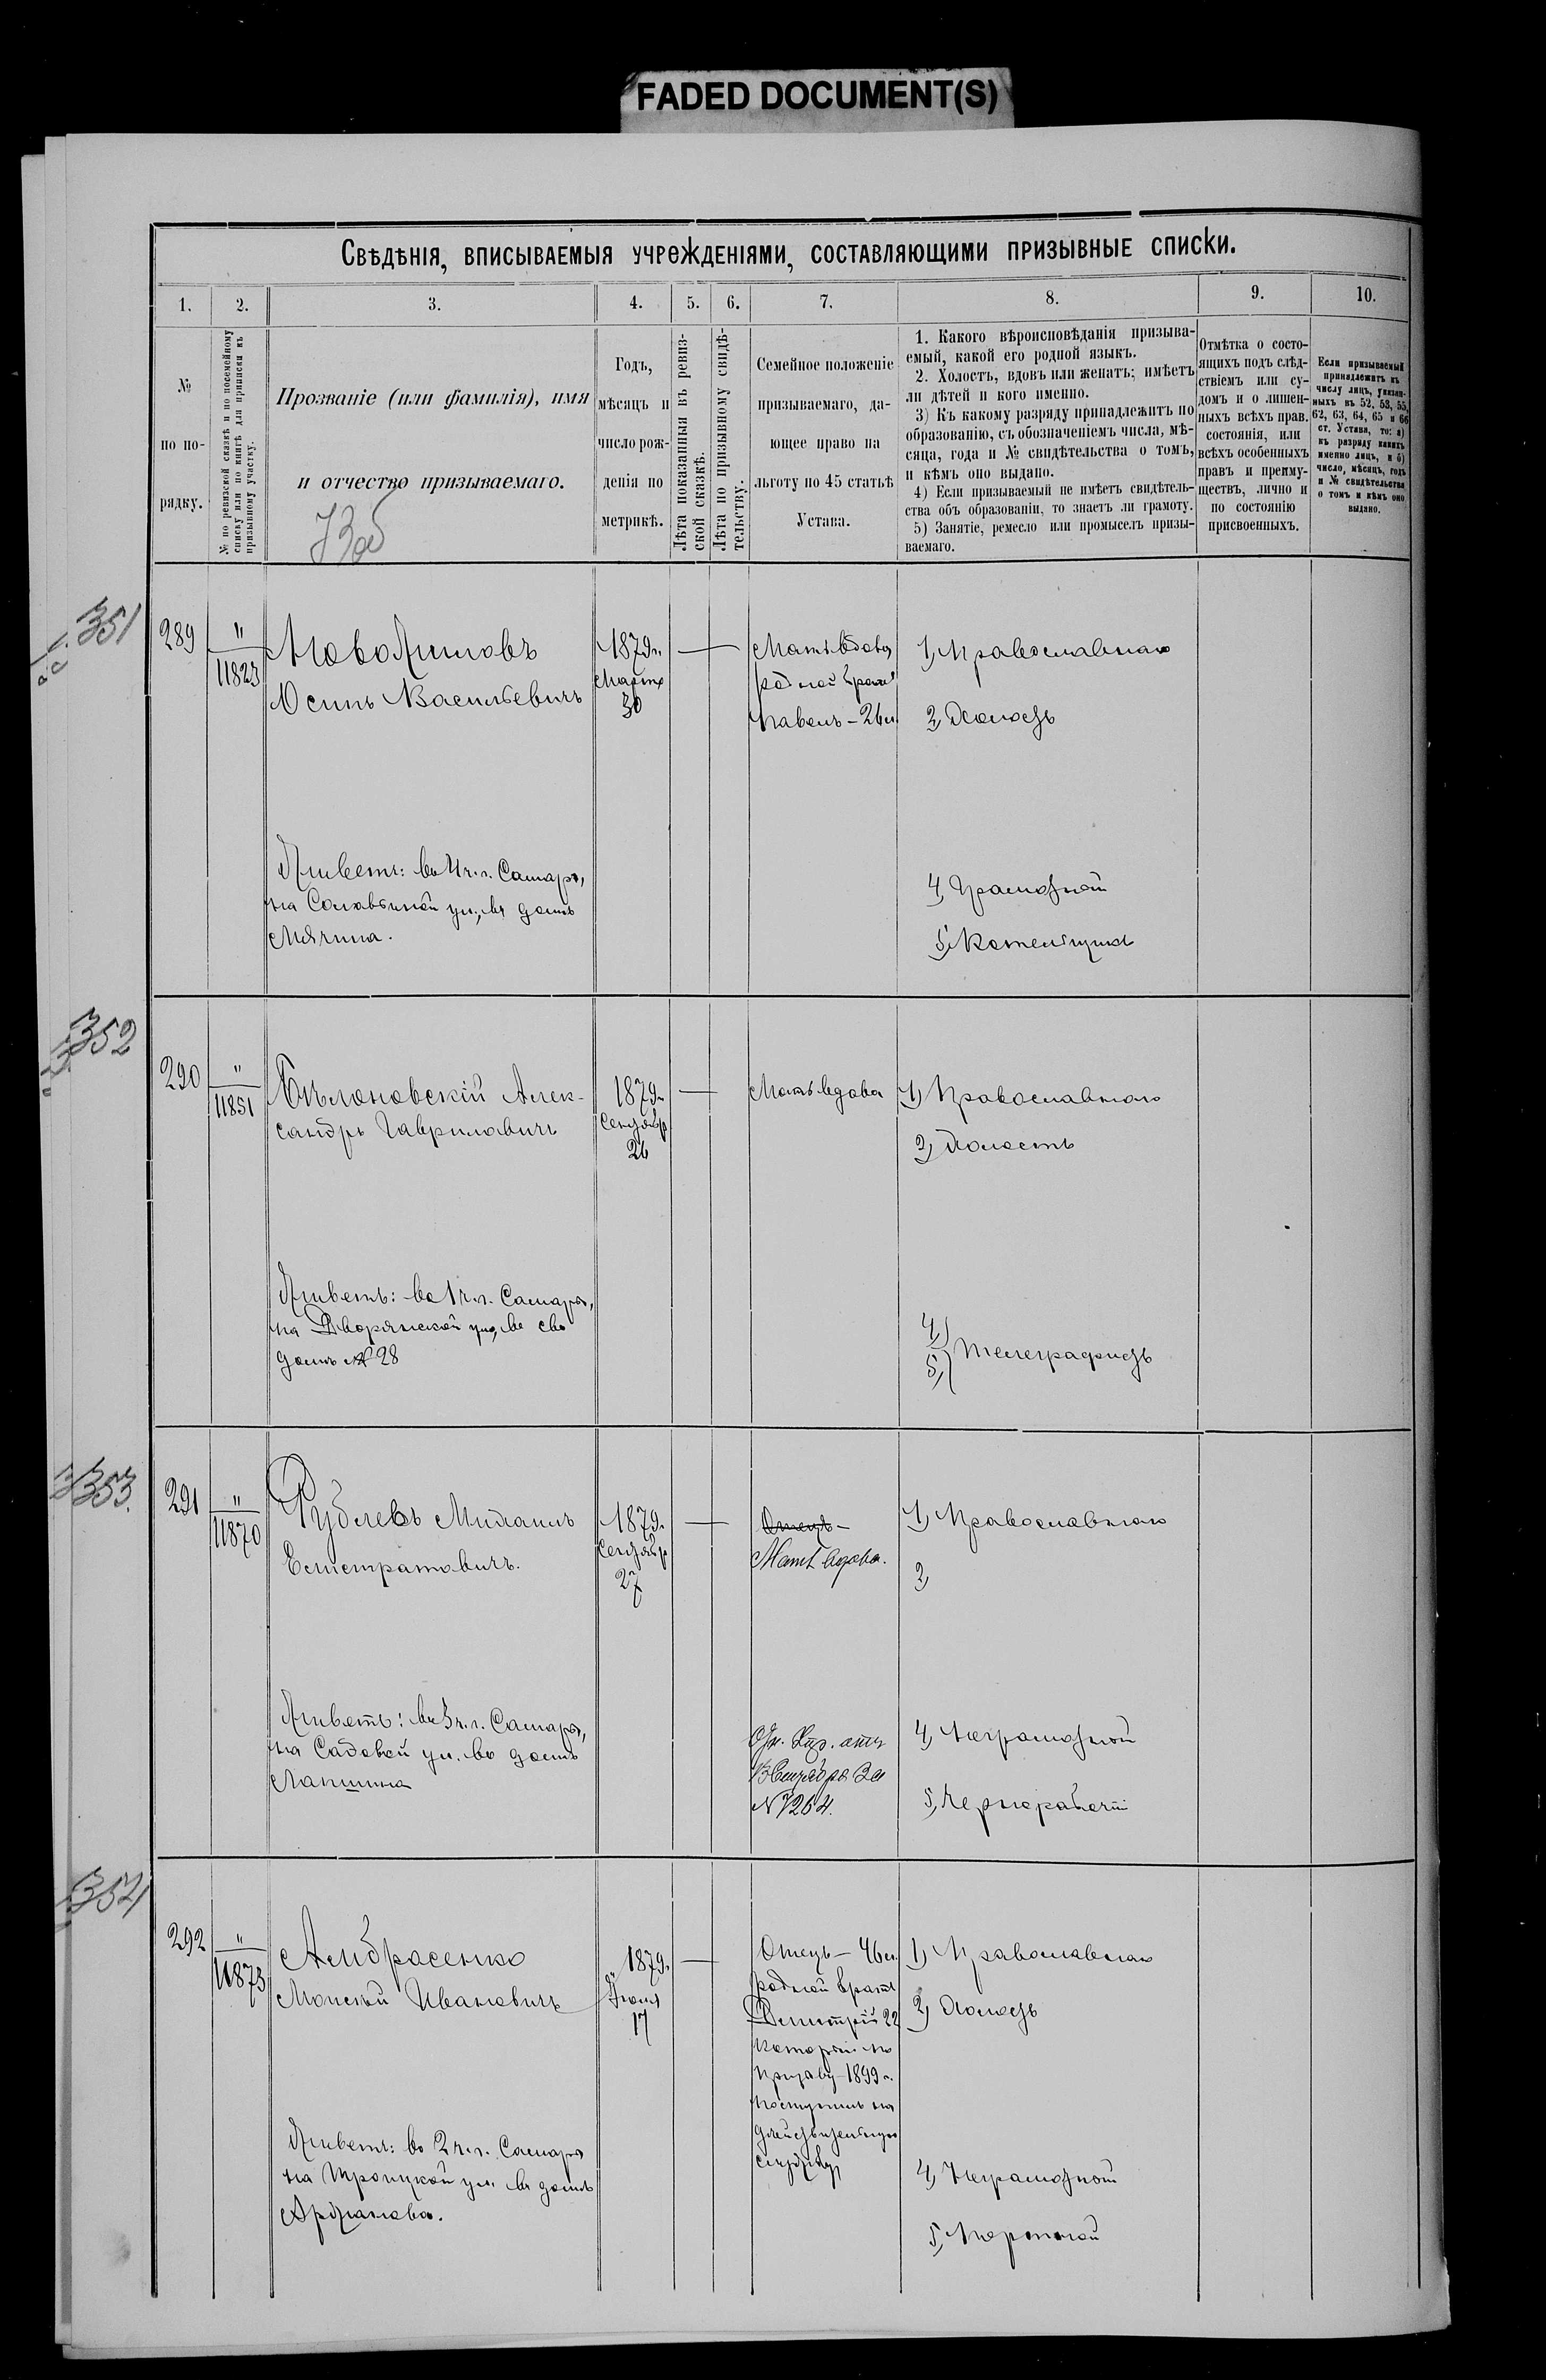 FADED DOCUMENT(S)
Свѣдѣнія, вписываемыя учрежденіями, составляющими призывные списки.
1. 2. 3. 4. 5. 6. 7. 8. 9. 10.
№
по по-
рядку.
№ по ревизской сказкѣ и по посемейному
списку или по книгѣ для приписки къ
призывному участку.
Прозваніе (или фамилія), имя
и отчество призываемаго.
Годъ,
мѣсяцъ и
число рож-
денія по
метрикѣ.
Лѣта показанныя въ ревиз-
ской сказкѣ.
Лѣта по призывному свидѣ-
тельству.
Семейное положеніе
призываемаго, да-
ющее право на
льготу по 45 статьѣ
Устава.
1. Какого вѣроисповѣданія призыва-
емый, какой его родной языкъ.
2. Холостъ, вдовъ или женатъ; имѣетъ
ли дѣтей и кого именно.
3) Къ какому разряду принадлежитъ по
образованію, съ обозначеніемъ числа, мѣ-
сяца, года и № свидѣтельства о томъ,
и кѣмъ оно выдано.
4) Если призываемый не имѣетъ свидѣтель-
ства объ образованіи, то знаетъ ли грамоту.
5) Занятіе, ремесло или промыселъ призы-
ваемаго.
Отмѣтка о состо-
ящихъ подъ слѣд-
ствіемъ или су-
домъ и о лишен-
ныхъ всѣхъ прав.
состоянія, или
всѣхъ особенныхъ
правъ и преиму-
ществъ, лично и
по состоянію
присвоенныхъ.
Если призываемый
принадлежитъ къ
числу лицъ, указан-
ныхъ въ 52, 53, 55,
62, 63, 64, 65 и 66
ст. Устава, то: а)
къ разряду какихъ
именно лицъ, и б)
число, мѣсяцъ, годъ
и № свидѣтельства
о томъ и кѣмъ оно
выдано.
351
289
"
11823
Новожиловъ
Осипъ Васильевичъ
1879г.
Марта
30
Мать вдова
родной братъ
Павелъ - 26л.
1, Православнаго
2, Холостъ
Живетъ: въ 4 ч. г. Самары,
на Соловьиной ул., въ домѣ
Мячина.
4, Грамотной
5, Котельщикъ
352
290
"
11851
Бѣляновскій Алек-
сандръ Гавриловичъ
1879г.
Сентябр
26
Мать вдова
1, Православнаго
2, Холостъ
Живетъ: въ 1 ч. г. Самары,
на Дворянской ул, въ сво
домѣ № 28
4,
5, Телеграфистъ
353
291
"
11870
Рублевъ Михаилъ
Естстратовичъ.
1879г.
Сентябр
27
Отецъ -
Мать вдова.
1, Православнаго
2,
Живетъ: въ 3 ч. г. Самары,
на Садовой ул. въ домѣ
Лапшина
№ 7264.
4, Неграмотной
5, Чернорабочій
354
292
"
11873
Андрасенко
Моисей Ивановичъ
1879г.
Іюля
17
Отецъ - 46л.
родной братъ
Дмитрій 22
который по
призыву 1899 г.
поступилъ на
дѣйствительную
службу
1, Православнаго
2, Холостъ
Живетъ: во 2 ч. г. Самары
на Троицкой ул. въ домѣ
Аржанова.
4, Неграмотной
5, Портной